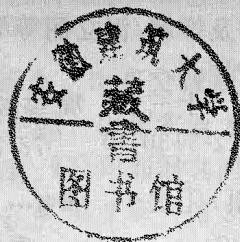 安徽大学
藏
书
图书馆